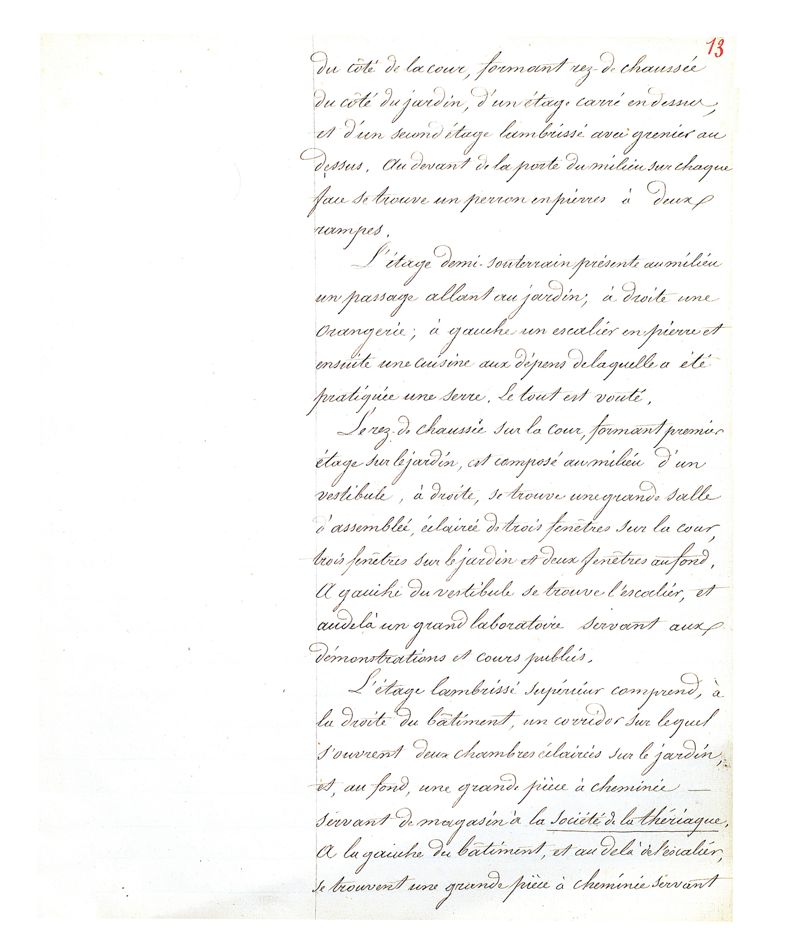 13
du côté de la cour, formant rez-de chaussée
du côté du jardin, d'un étage carré en dessus,
et d'un second étage lambrissé avec grenier au
dessus. Au devant de la porte du milieu sur chaque
face se trouve un perron en pierres à deux
rampes.
L'étage demi-souterrain présente au milieu
un passage allant au jardin; à droite une
orangerie; à gauche un escalier en pierre et
ensuite une cuisine aux dépens de laquelle a été
pratiquée une serre. Le tout est vouté.
Le rez-de chaussée sur la cour, formant premier
étage sur le jardin, est composé au milieu d'un
vestibule, à droite, se trouve une grande salle
d'assemblée, éclairée de trois fenêtres sur la cour,
trois fenêtres sur le jardin et deux fenêtres au fond.
A gauche du vestibule se trouve l'escalier, et
audelà un grand laboratoire servant aux
démonstrations et cours publics.
L'étage lambrissé supérieur comprend, à
la droite du bâtiment, un corridor sur lequel
s'ouvrent deux chambres éclairées sur le jardin,
et, au fond, une grande pièce à cheminée —
servant de magasin à la société de la thériaque.
A la gauche du bâtiment, et au delà de l'escalier,
se trouvent une grande pièce à cheminée servant